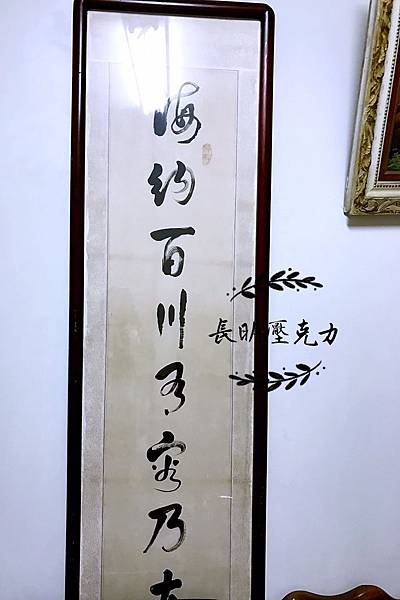 海納百川有容乃大
長明壓克力